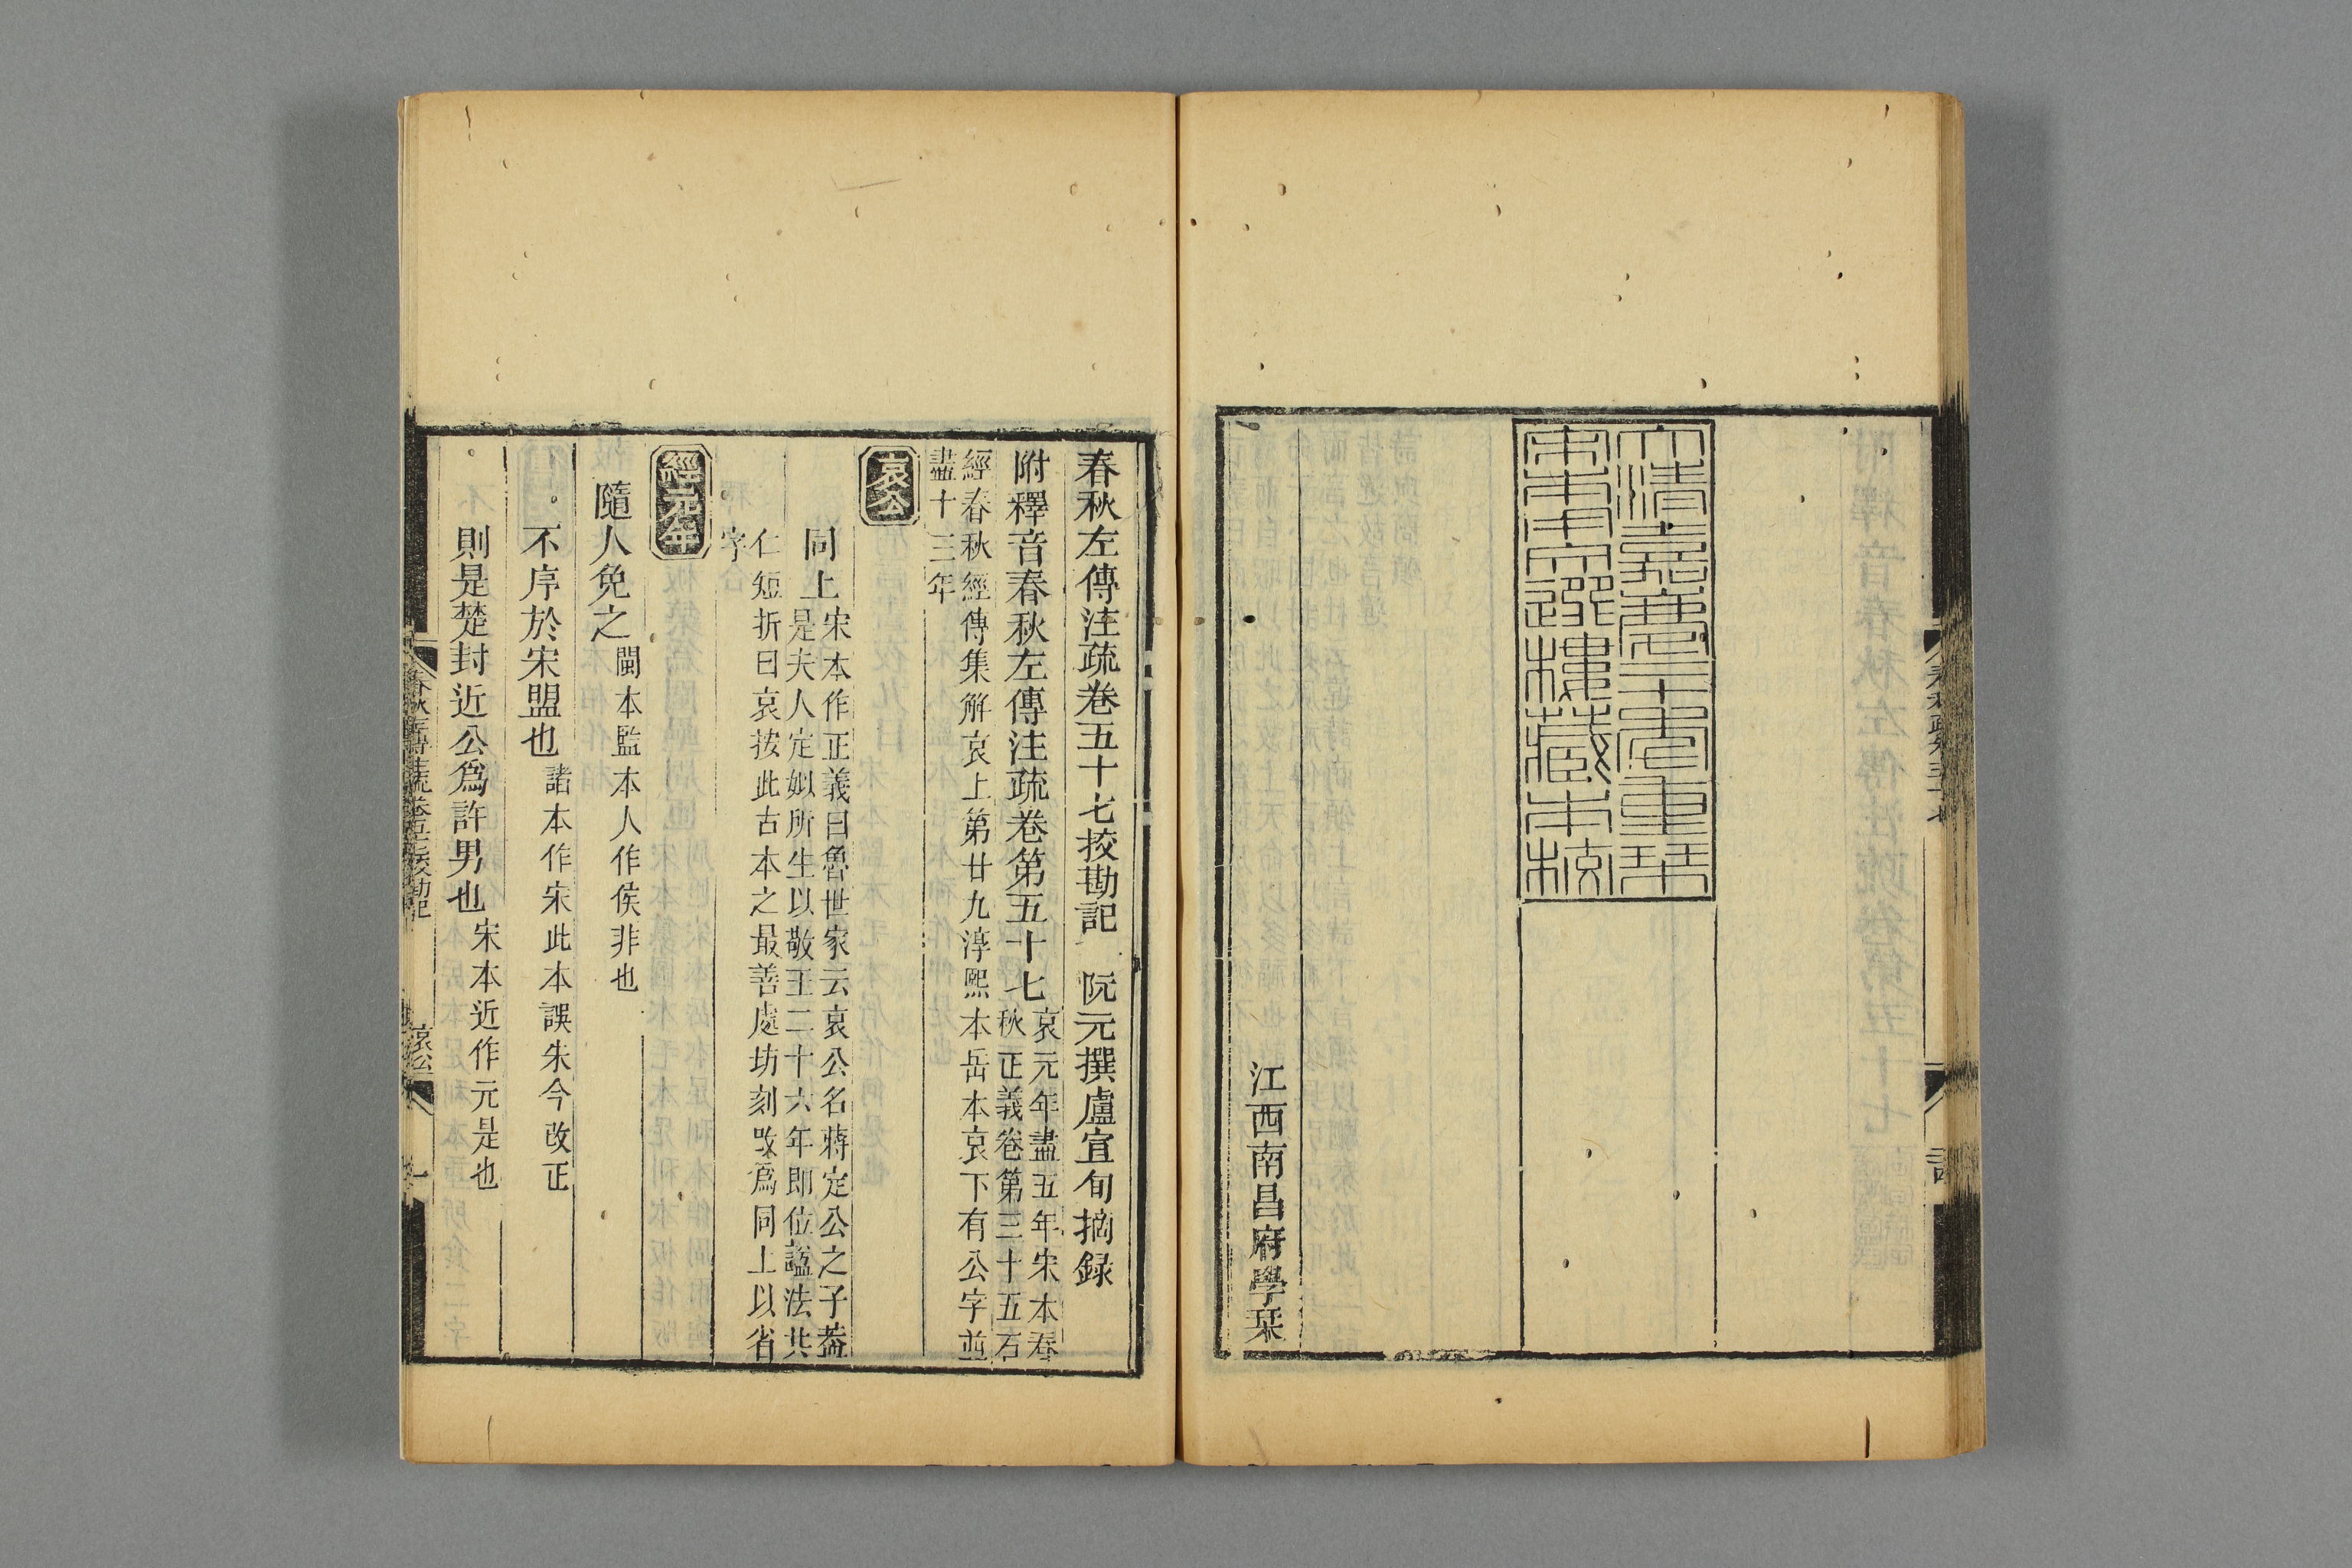 大清嘉慶二十年重栞
宋本用文選樓藏本校
江西南昌府學栞
春秋左傳注疏卷五十七挍勘記 阮元撰盧宣旬摘録
附釋音春秋左傳注疏卷第五十七
哀元年盡五年宋本春
秋正義卷第三十五石
經春秋經傳集解哀上第廿九淳熙本岳本哀下有公字並
盡十三年
哀公
同上
宋本作正義曰魯世家云哀公名蔣定公之子葢
是夫人定姒所生以敬王二十六年即位謚法共
仁短折曰哀按此古本之最善處坊刻改爲同上以省
字
經元年
隨人免之
閩本監本人作侯非也
不序於宋盟也
諸本作宋此本誤朱今改正
則是楚封近公爲許男也
宋本近作元是也
春秋左傳注疏卷五十七挍勘記
哀公
一